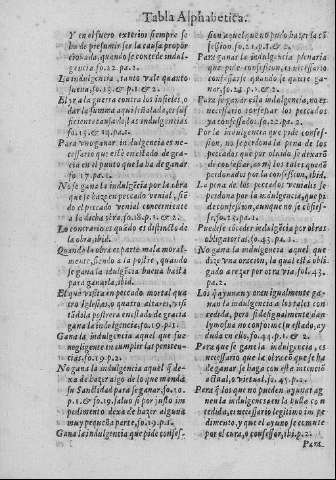 Tabla Alphabetica.
Y en el fuero exterior siempre se
ha de presumir ser la causa propor
cionada, quando se concede indul-
gencia fo.22.pa.2.
La indulgencia, tanto vale quanto
suena, fo.13. & p.1 & 2.
El yr a la guerra contra los infieles, o
dar la summa aqui señalada, es
las indulgencias
fo.15. & 19.pa.1.
Para vno ganar indulgencia es ne-
cessario que este en estado de gra-
cia en el punto que la ha de ganar
fo.17.pa.1.
No se gana la indulgēcia por la obra
que se haze en peccado venial, siē
do el peccado venial concerniente
a la dicha obra, fo.18.p.1. & 2.
Lo contrario es quādo es distincto de
la obra, ibid.
Quando la obra es parte mala moral-
mente, siendo a la postre, quando
se gana la indulgēcia buena basta
para ganarla, ibid.
El que visita en peccado mortal qua
tro iglesias, o quatro altares, y vi
sādo la postrera en estado de gracia
gana la indulgencia. fo.19.p.1.
Gana la indulgencia aquel que fue
negligente in cumplir su peniten-
cia, fo.19.p.2.
No gana la indulgencia aquel q̄ de-
xa de hazer algo de lo que manda
su Sanctidad para se ganar, fo.20.
p.1. & fo.19. saluo si por justo im
pedimento dexa de hazer alguna
muy pequeña parte, fo.19.p.1.
Gana la indulgencia que pide confes-
sion aquel que no pudo hazer la cō
fession, fo.21.p.1. & 2.
Para ganar la indulgencia plenaria
que pide confession, es necessario
confessarse quando se quiere ga-
nar, fo.24.p.1.
Para se ganar esta indulgencia, no es
necessario confessar los peccados
ya confessados, fo.22.pa.2.
Por la indulgencia que pide confes-
sion, no se perdona la pena de los
peccados que por oluido se dexarō
de confessar, aunq̄ los tales queden
perdonados por la confession, ibid.
La pena de los peccados veniales se
perdona por la indulgencia, que pi
de confession, aunque no se confes-
sen, fo.23.pa.1.
Puedese cōceder indulgencia por obras
obligatorias, fo.43.pa.1.
No gana la indulgencia aquel que
dize vna oracion, la qual esta obli-
gado a rezar por otra via. fol.43.
pa.2.
Los q̄ ayunan y oran igualmente ga-
nan la indulgencia a los tales con-
cedida, pero si desigualmente dan
lymosna no conforme su estado, ay
duda en ello, fo.44.p.1. & 2.
Para que se gane la indulgencia, es
necessario que la obra cō que se ha
de ganar se haga con esta intenciō
actual, o virtual, fo.45.p.2.
Para q̄ los que no pueden ayunar ga-
nen la indulgencia en la bulla con
cedida, es necessario legitimo im pe
dimento, y que el ayuno se cōmute
por el cura, o confessor, ibi.p.2.
Para